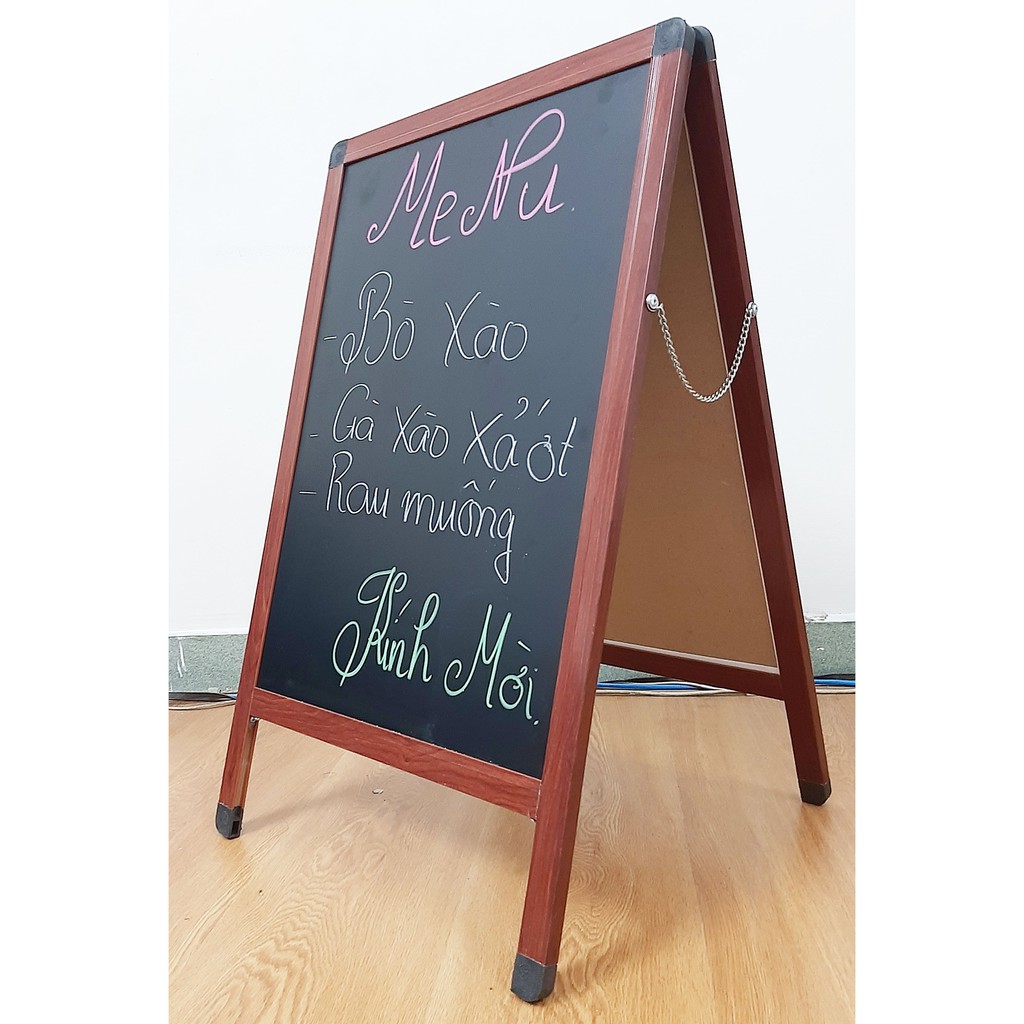 MeNu.
- Bò Xào
- Gà xào xả ớt
- Rau muống
Kính Mời.